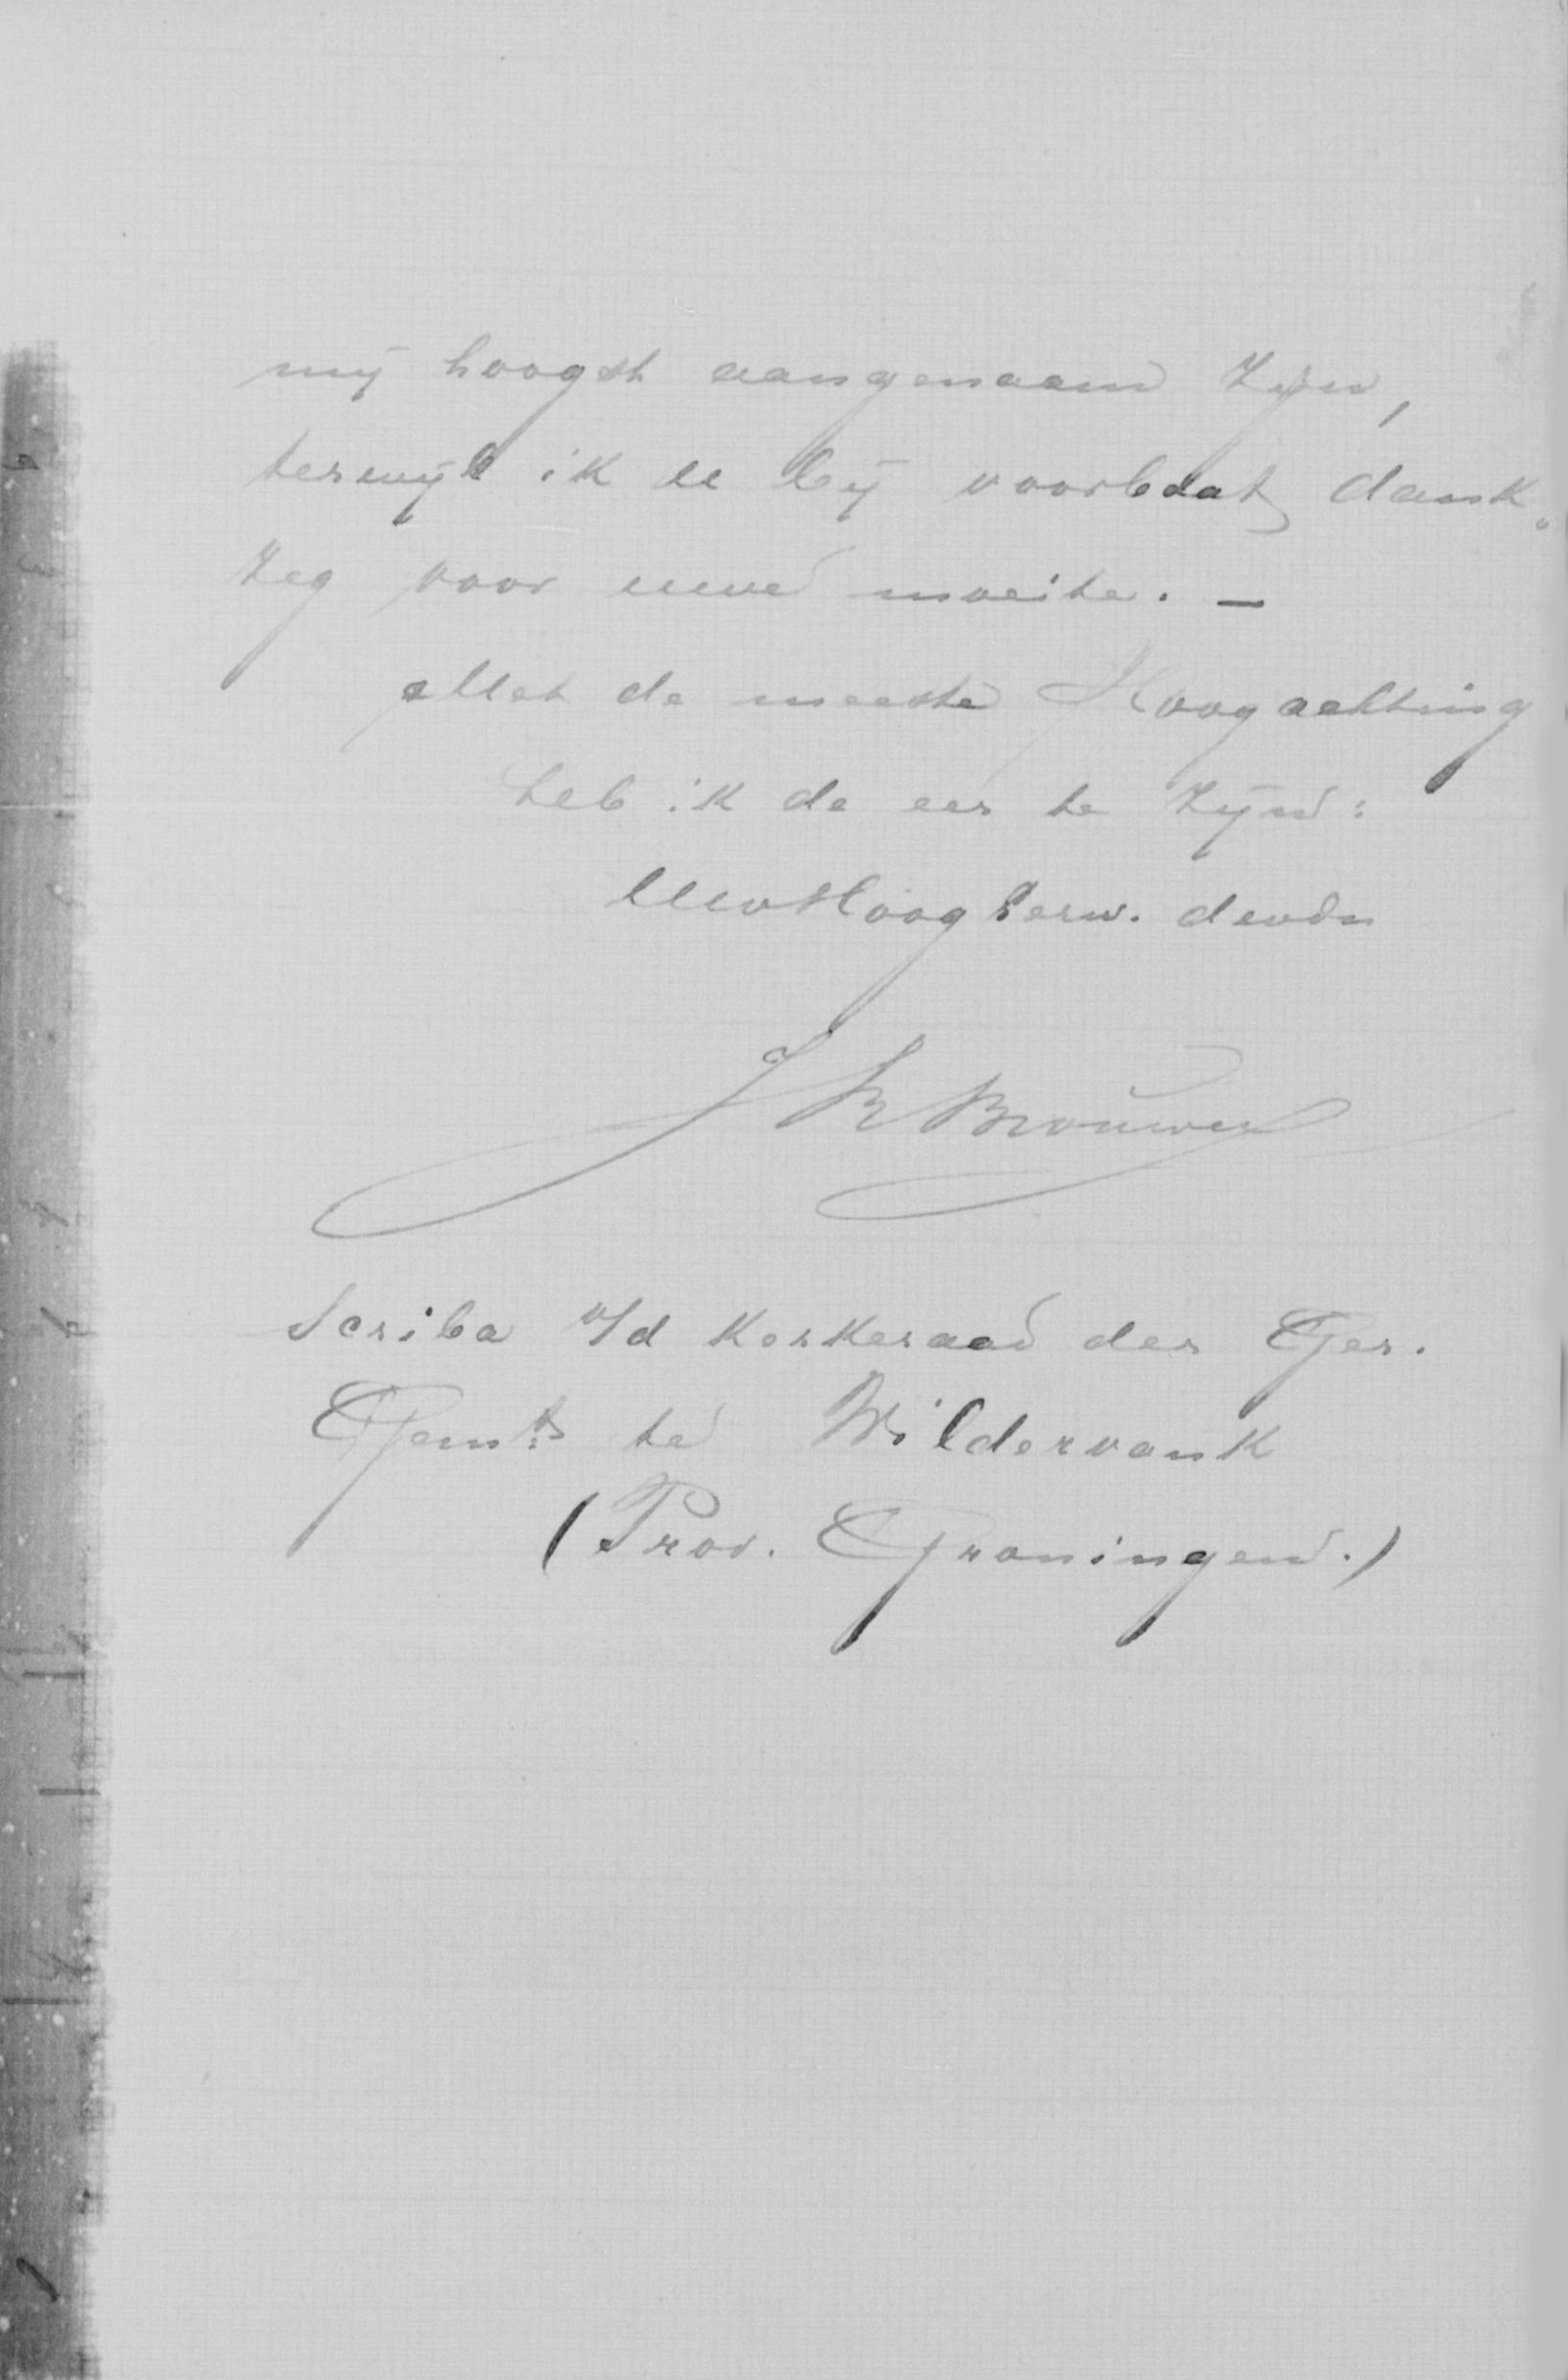 mij hoogst aangenaam zijn,
terwijl ik U bij voorbaat dank„
zeg voor uwe moeite. —
Met de meeste Hoogachting
heb ik de eer te zijn:
Uw HoogEerw. dwdr
J R Brouwer
Scriba v/d Kerkeraad der Ger.
Gemte te Wildervank
(Prov. Groningen.)